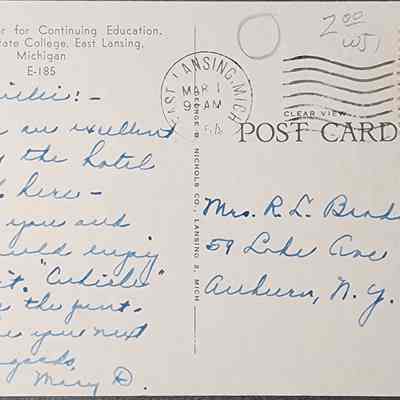 r for Continuing Education.
ate College, East Lansing,
Michigan
E-185
are excellent
the hotel
here -
you and
ould enjoy
it.
the
you next
Mary D.
EAST LANSING, MICH
MAR 1
9 AM
2 00
WJ
CLEAR VIEW
POST CARD
NICHOLS CO., LANSING 2, MICH
Mrs. R. L.
59 Lake Ave
Auburn, N.Y.